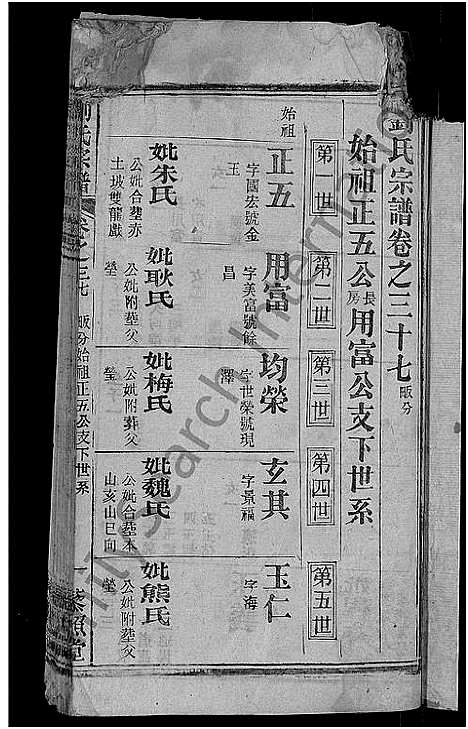 劉氏宗譜卷之三十七 畈分
始祖正五公長房用富公支下世系
第一世
第二世
第三世
第四世
第五世
始祖
正五
字國宏號金玉
用富
字美富號餘昌
均榮
字世榮號現澤
玄其
字景福
玉仁
字海
妣朱氏
公妣合塟赤土坡雙龍戲
妣耿氏
公妣附塟父塋
妣梅氏
公妣附葬父塋
妣魏氏
公妣合塟本山亥山巳向
妣熊氏
公妣附塟父塋
劉氏宗譜
卷之三七 畈分始祖正五公支下世系
一 藜照堂